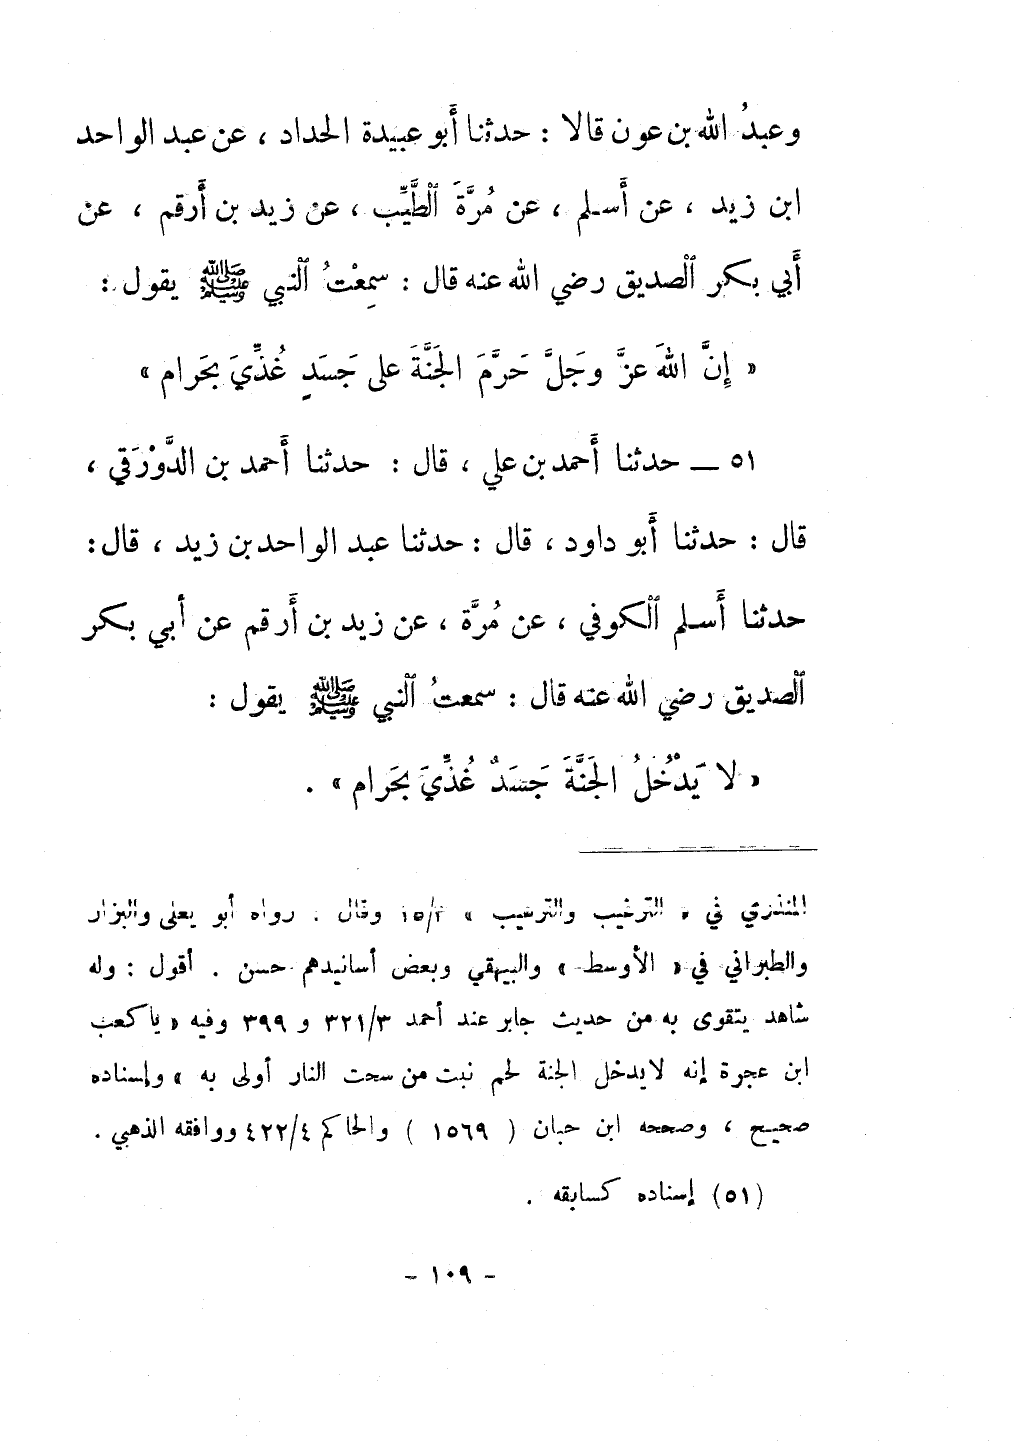 وعبدُ الله بن عون قالا : حدثنا أَبو عبيدة الحداد ، عن عبد الواحد
ابن زيد ، عن أَسلم ، عن مُرَّةَ ٱلطَّيِّب ، عن زيد بن أَرقم ، عن
أَبي بكر ٱلصديق رضي الله عنه قال : سمِعْتُ ٱلنبي ﷺ يقول :
« إِنَّ اللهَ عزَّ وجَلَّ حَرَّمَ الجَنَّةَ على جَسَدٍ غُذِّيَ بحَرام »
٥١ ــ حدثنا أَحمد بن علي ، قال : حدثنا أَحمد بن الدَّوْرَقي ،
قال : حدثنا أَبو داود ، قال : حدثنا عبد الواحد بن زيد ، قال :
حدثنا أَسلم ٱلكوفي ، عن مُرَّة ، عن زيد بن أَرقم عن أبي بكر
ٱلصديق رضي الله عنه قال : سمعتُ ٱلنبي ﷺ يقول :
« لا يَدْخُلُ الجَنَّةَ جَسَدٌ غُذِّيَ بحَرام » .
المنذري في « الترغيب والترهيب » ١٥/٣ وقال . رواه أبو يعلى والبزار
والطبراني في « الأوسط » والبيهقي وبعض أسانيدهم حسن . أقول : وله
شاهد يتقوى به من حديث جابر عند أحمد ٣٢١/٣ و ٣٩٩ وفيه « يا كعب
ابن عجرة إنه لا يدخل الجنة لحم نبت من سحت النار أولى به » وإسناده
صحيح ، وصححه ابن حبان ( ١٥٦٩ ) والحاكم ٤٢٢/٤ ووافقه الذهبي .
(٥١) إسناده كسابقه .
- ١٠٩ -